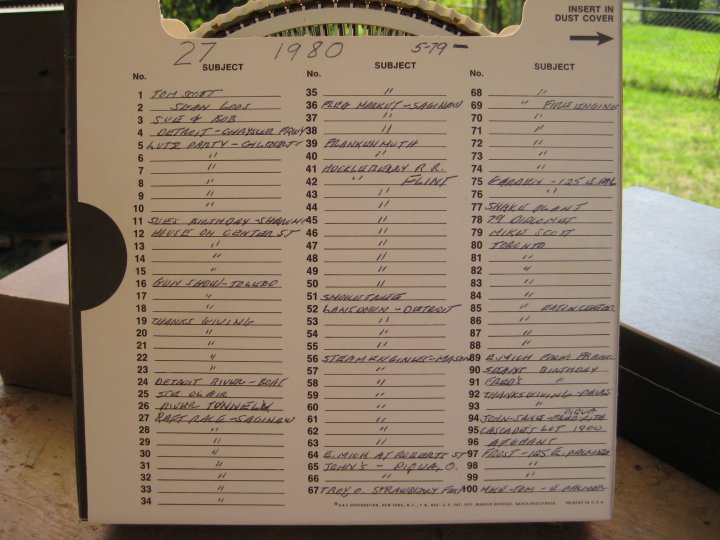 INSERT IN
DUST COVER
27 1980 5-79-
No. SUBJECT
1 TOM SURT
2 SEAN LOOS
3 SUE & BOB
4 DETROIT - CHRYSLER FRWY
5 LUTZ PARTY -
6 "
7 "
8 "
9 "
10 "
11 SUES BIRTHDAY -
12 HOUSE ON CENTER ST
13 "
14 "
15 "
16 GUN SHOW - TOLEDO
17 "
18 "
19 THANKS GIVING
20 "
21 "
22 "
23 "
24 DETROIT RIVER - BOAT
25 STE CLAIR
26 RIVER TUNNEL
27 RAFT RACE - SAGINAW
28 "
29 "
30 "
31 "
32 "
33 "
34 "
No. SUBJECT
35 "
36 FLEA MARKET - SAGINAW
37 "
38 "
39 FRANKENMUTH
40 "
41 HUCKLEBERRY R.R.
42 " FLINT
43 "
44 "
45 "
46 "
47 "
48 "
49 "
50 "
51 SMOKETREE
52 LANSDOWN - DETROIT
53 "
54 "
55 "
56 STEAM ENGINES - MASON
57 "
58 "
59 "
60 "
61 "
62 "
63 "
64 E. MICH AT ROBERTS ST
65 JOHN'S - PIQUA, O.
66 "
67 TROY, O. STRAWBERRY FEST
No. SUBJECT
68 "
69 " FIRE ENGINE
70 "
71 "
72 "
73 "
74 "
75 GARDEN - 125 E. PAL
76 "
77 SNAKE PLANT
78 79 DIPLOMAT
79 MIKE SCOTT
80 TORONTO
81 "
82 "
83 "
84 "
85 " EATON CENTER
86 "
87 "
88 "
89 E. MICH
90 SEANS BIRTHDAY
91 FRED'S "
92 THANKSGIVING - PAULS
93 " PIQUA
94 JOHN - - RITA
95 CASCADES LOT 1980
96 AFGHANS
97 FROST - 125 E. PALMER
98 "
99 "
100 MIKE - TOM - E PALMER
® GAF CORPORATION, NEW YORK, N.Y., T.M. REG. U.S. PAT. OFF. MARCAS REGDAS. MARCA REGISTRADA. PRINTED IN U.S.A.